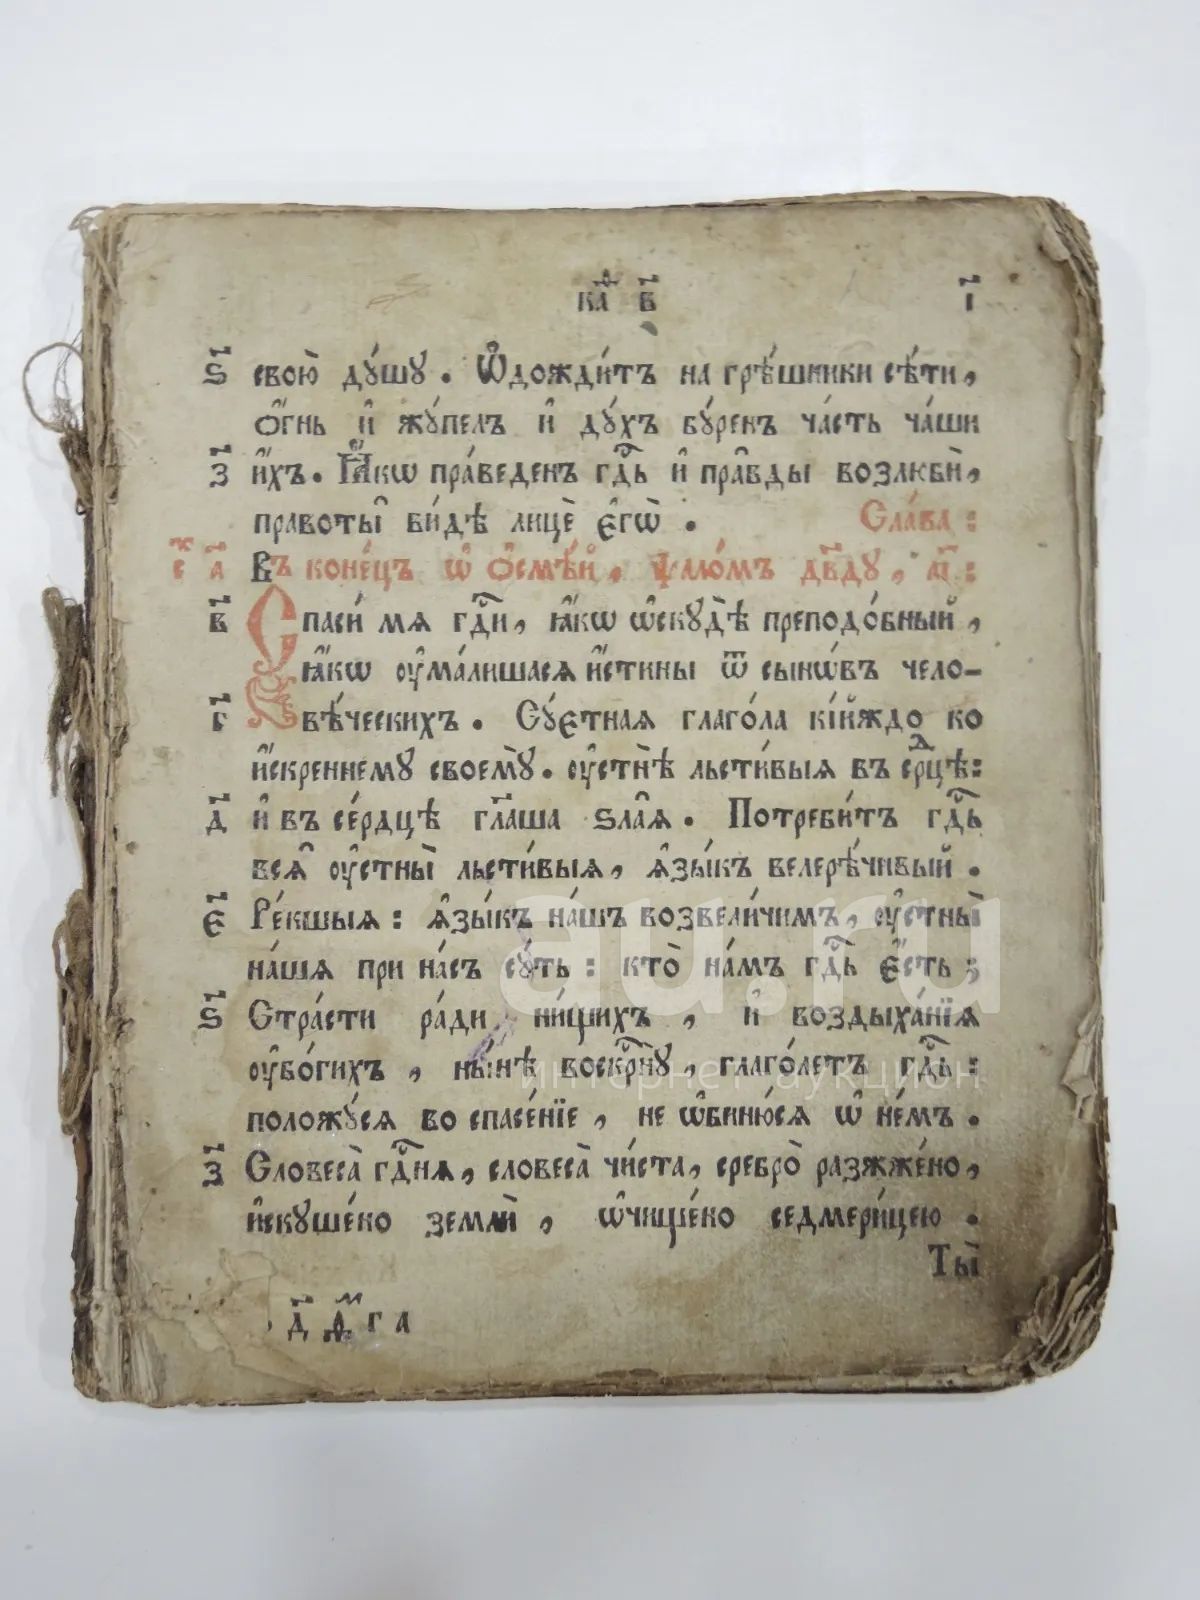 ка҃ѳ в҃ і҃
ѕ҃ свою̀ ду́шу. Ѡ҆дожди́тъ на грѣ́шники сѣ́ти,
ѻ҆́гнь и҆ жу́пелъ и҆ ду́хъ бу́ренъ ча́сть ча́ши
з҃ и҆́хъ. Ꙗ҆́кѡ пра́веденъ гд҇ь и҆ пра̑вды возлюбѝ,
правоты̑ ви́дѣ лицѐ є҆гѡ̀. Сла́ва:
ст҃ а҃ Въ коне́цъ ѡ҆ ѻ҆смѣ́й, ѱало́мъ дв҃ду, а҃і:
в҃ Спаси́ мѧ гд҇и, ꙗ҆́кѡ ѡ҆скудѣ̀ преподо́бный,
ꙗ҆́кѡ ѹ҆ма́лишасѧ и҆́стины ѿ сынѡ́въ чело-
г҃ вѣ́ческихъ. Сꙋ́етнаѧ глаго́ла кі́йждо ко
и҆́скреннему своемꙋ̀. ѹ҆стнѣ̀ льсти́выѧ въ срⷣцѣ:
д҃ и҆ въ се́рдцѣ гл҃аша ѕла̑ѧ. Потреби́тъ гд҇ь
всѧ̑ ѹ҆стны̀ льсти́выѧ, ѧ҆зы́къ велерѣ́чивый.
є҃ Ре́кшыѧ: ѧ҆зы́къ на́шъ возвели́чимъ, ѹ҆стны̀
на́шѧ при на́съ сꙋ́ть: кто̀ на́мъ гд҇ь є҆́сть;
ѕ҃ Стра́сти ра́ди ни́щихъ, и҆ воздыха́нїѧ
ѹ҆бо́гихъ, ны́нѣ воскр҇нꙋ, глаго́летъ гд҇ь:
положꙋ́сѧ во спасе́нїе, не ѡ҆биню́сѧ ѡ҆ не́мъ.
з҃ Словеса̀ гд҇нѧ, словеса̀ чи́ста, сребро̀ разжже́но,
и҆скꙋше́но землѝ, ѡ҆чище́но седмери́цею.
Ты̀
au.ru
интернет аукцион